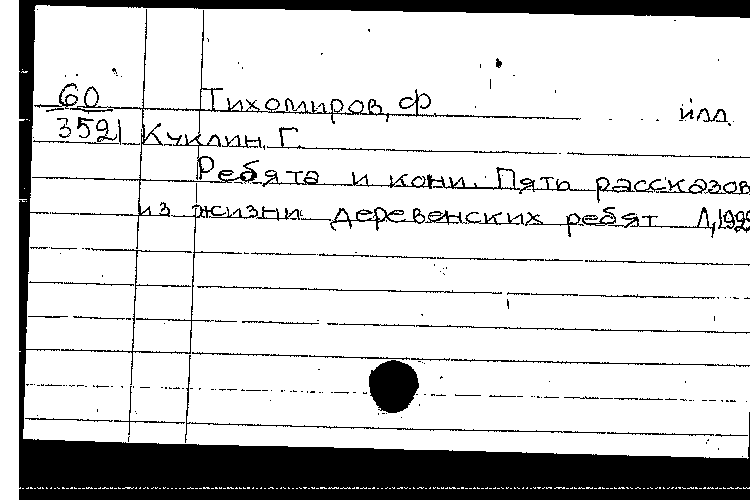 60 Тихомиров, Ф. илл.
3521 Куклин, Г.
Ребята и кони. Пять рассказов
из жизни деревенских ребят Л,